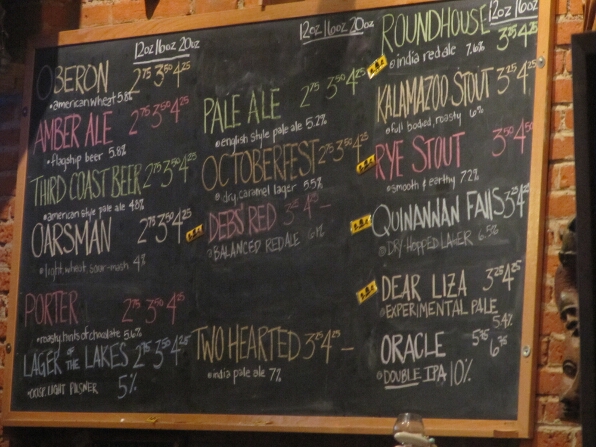 12oz 16oz 20oz
OBERON 2.75 3.50 4.25
american wheat 5.8%
AMBER ALE 2.75 3.50 4.25
flagship beer 5.8%
THIRD COAST BEER 2.75 3.50 4.25
american style pale 4.8%
OARSMAN 2.75 3.50 4.25
light, wheat, sour-mash 4%
PORTER 2.75 3.50 4.25
roasty, hints of chocolate 5.6%
LAGER OF THE LAKES 2.75 3.50 4.25
LIGHT PILSNER 5%
12oz 16oz 20oz
PALE ALE 2.75 3.50 4.25
english style pale ale 5.2%
OCTOBERFEST 2.75 3.50 4.25
dry, caramel lager 5.5%
DEBS' RED
BALANCED RED ALE 6.1%
TWO HEARTED 3.25 4.25 —
india pale ale 7%
12oz 16oz
ROUNDHOUSE 3.25 4.25
india red ale 7.6%
KALAMAZOO STOUT 3.25 4.25
full bodied, roasty 6%
RYE STOUT 3.50 4.50
smooth & earthy 7.2%
QUINANNAN FALLS 3.25 4.25
DRY-HOPPED LAGER 6.5%
DEAR LIZA 3.25 4.25
EXPERIMENTAL PALE
5.4%
ORACLE 5.75 6.75
DOUBLE IPA 10%